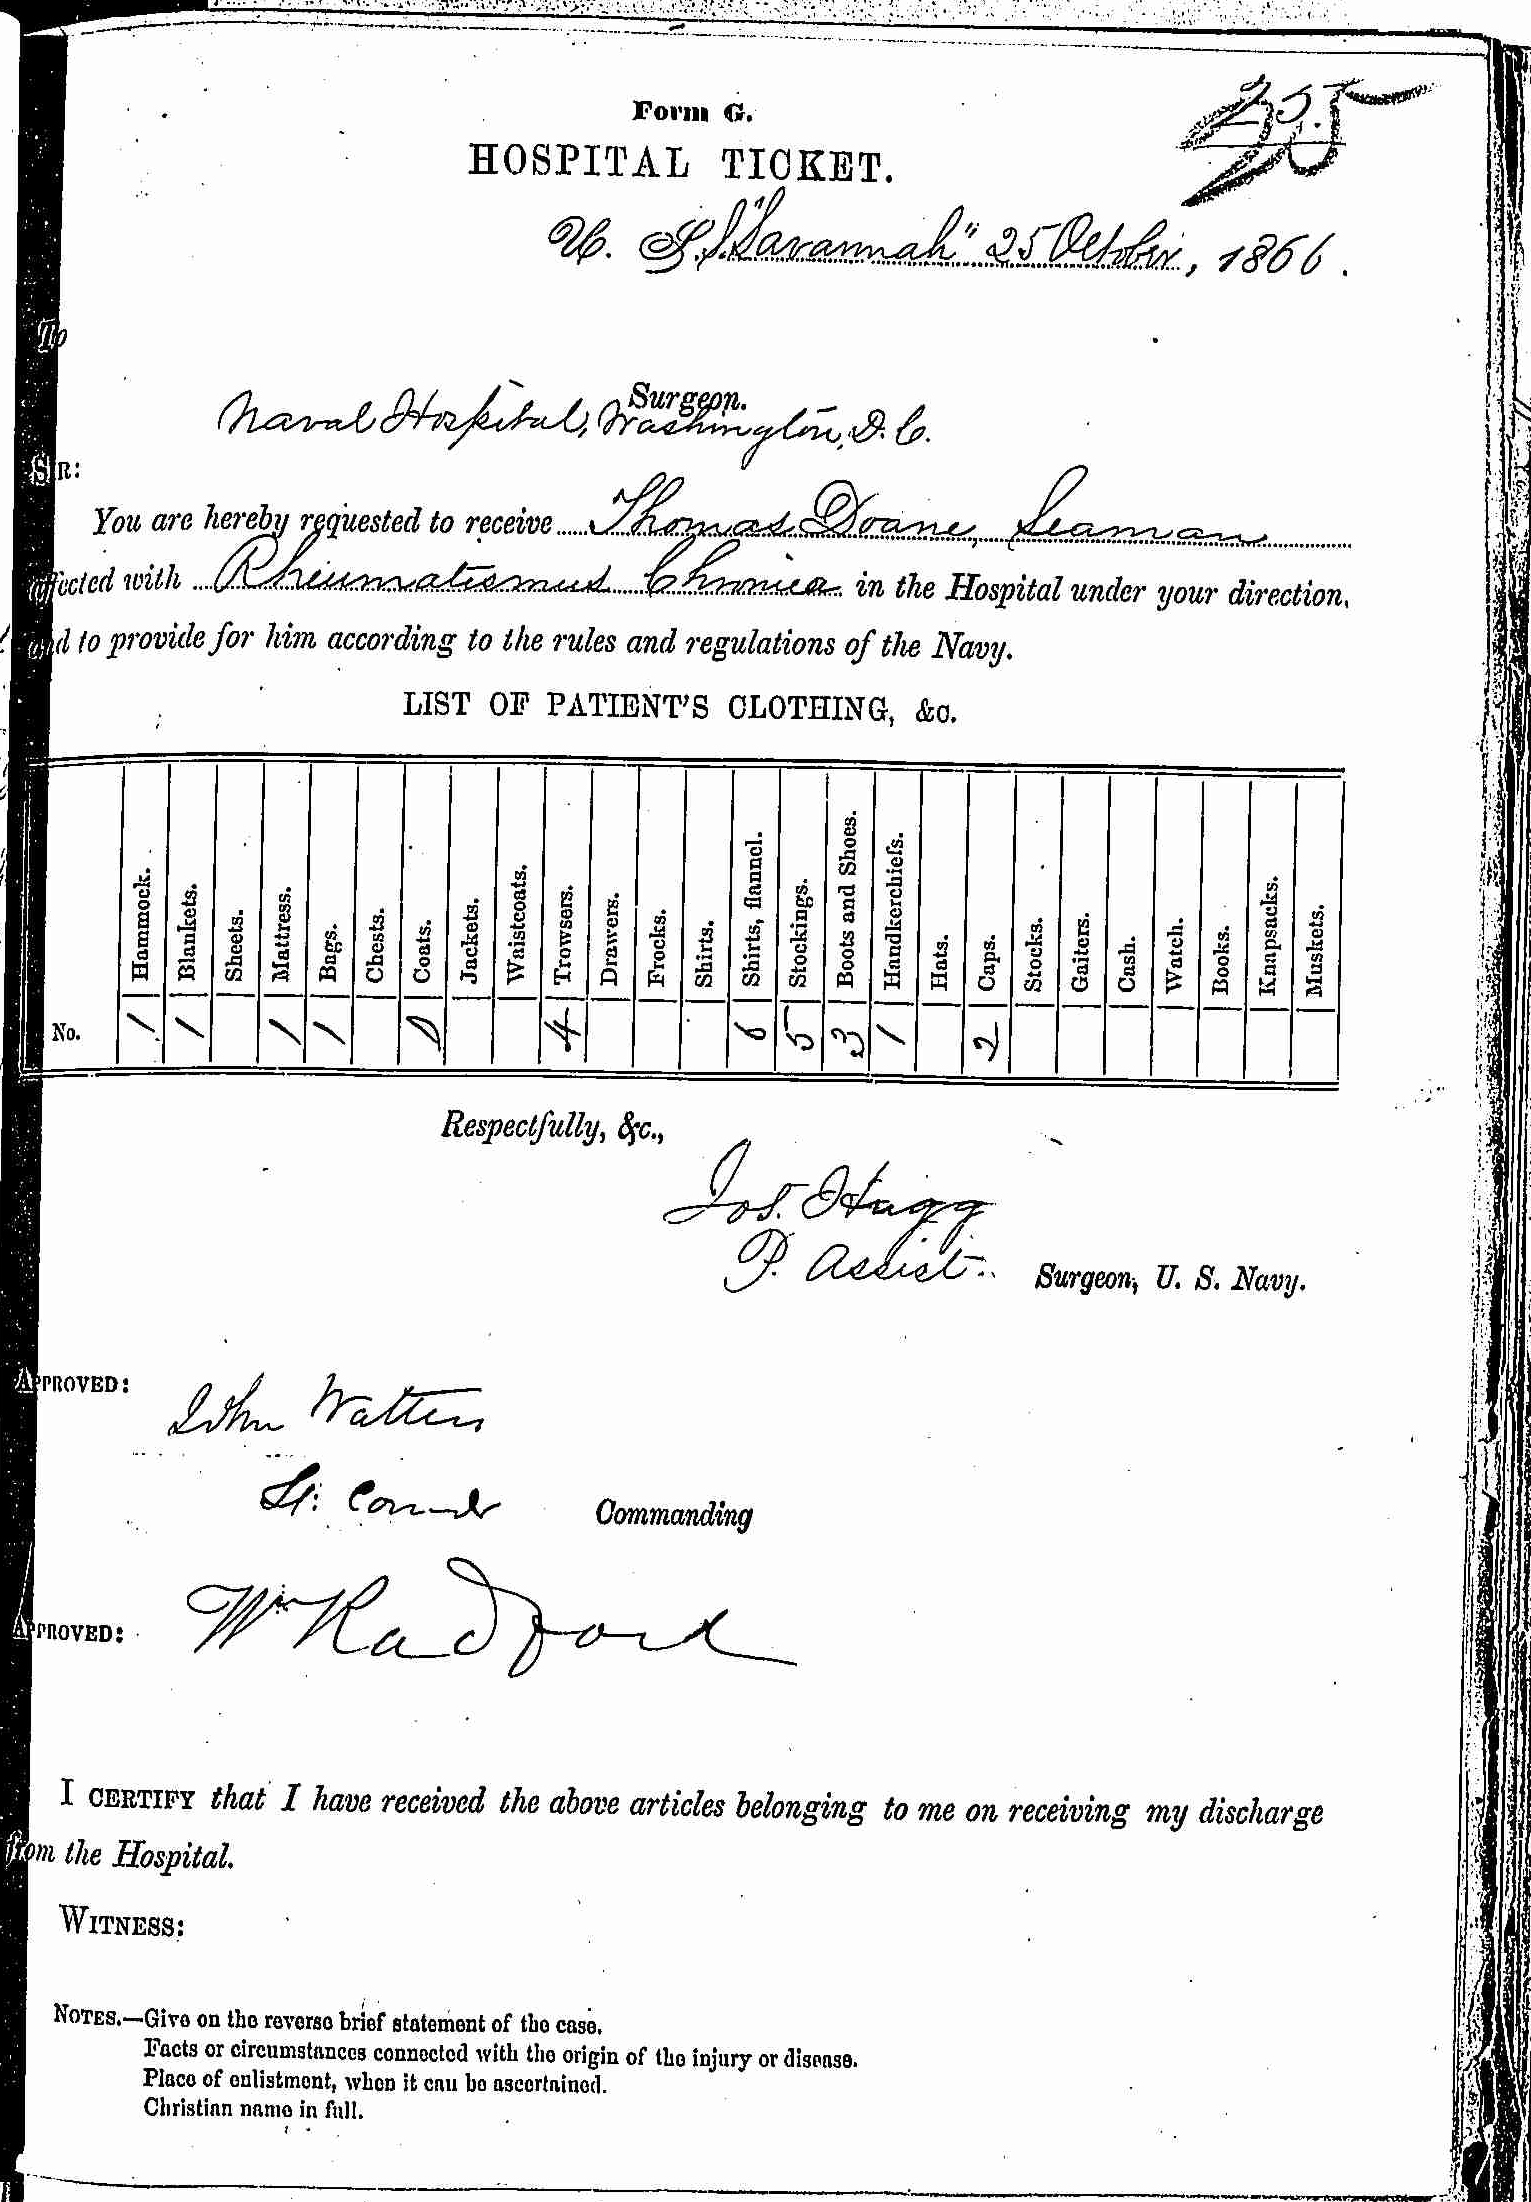 Form G.
HOSPITAL TICKET.
U. S. S. "Savannah" 25 October, 1866.
To
Surgeon.
Naval Hospital, Washington, D. C.
SIR:
You are hereby requested to receive Thomas Doane, Seaman
affected with Rheumatismus Chronica in the Hospital under your direction,
and to provide for him according to the rules and regulations of the Navy.
LIST OF PATIENT'S CLOTHING, &c.
Hammock. Blankets. Sheets. Mattress. Bags. Chests. Coats. Jackets. Waistcoats. Trowsers. Drawers. Frocks. Shirts. Shirts, flannel. Stockings. Boots and Shoes. Handkerchiefs. Hats. Caps. Stocks. Gaiters. Cash. Watch. Books. Knapsacks. Muskets.
No. 1 1 1 1 4 6 5 3 1 2
Respectfully, &c.,
Jos. Hugg
P. Assist. Surgeon, U. S. Navy.
APPROVED:
John Watters
Lt. Comdr Commanding
APPROVED: Wm Radford
I CERTIFY that I have received the above articles belonging to me on receiving my discharge
from the Hospital.
WITNESS:
NOTES.—Give on the reverse brief statement of the case.
Facts or circumstances connected with the origin of the injury or disease.
Place of enlistment, when it can be ascertained.
Christian name in full.